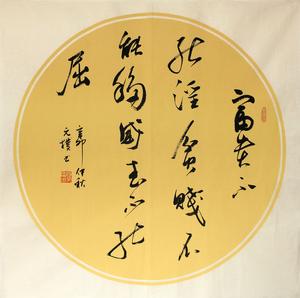 富貴不
能淫貧賤不
能移威武不能
屈
辛卯仲秋
元樸书